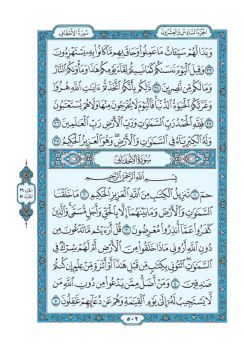 الجزء السادس والعشرون
سورة الأحقاف
وَبَدَا لَهُمْ سَيِّـَٔاتُ مَا عَمِلُوا۟ وَحَاقَ بِهِم مَّا كَانُوا۟ بِهِۦ يَسْتَهْزِءُونَ
٣٣ وَقِيلَ ٱلْيَوْمَ نَنسَىٰكُمْ كَمَا نَسِيتُمْ لِقَآءَ يَوْمِكُمْ هَٰذَا وَمَأْوَىٰكُمُ ٱلنَّارُ
وَمَا لَكُم مِّن نَّٰصِرِينَ ٣٤ ذَٰلِكُم بِأَنَّكُمُ ٱتَّخَذْتُمْ ءَايَٰتِ ٱللَّهِ هُزُوًا
وَغَرَّتْكُمُ ٱلْحَيَوٰةُ ٱلدُّنْيَا فَٱلْيَوْمَ لَا يُخْرَجُونَ مِنْهَا وَلَا هُمْ يُسْتَعْتَبُونَ
٣٥ فَلِلَّهِ ٱلْحَمْدُ رَبِّ ٱلسَّمَٰوَٰتِ وَرَبِّ ٱلْأَرْضِ رَبِّ ٱلْعَٰلَمِينَ ٣٦
وَلَهُ ٱلْكِبْرِيَآءُ فِى ٱلسَّمَٰوَٰتِ وَٱلْأَرْضِ وَهُوَ ٱلْعَزِيزُ ٱلْحَكِيمُ ٣٧
سورة الأحقاف
بِسْمِ ٱللَّهِ ٱلرَّحْمَٰنِ ٱلرَّحِيمِ
حمٓ ١ تَنزِيلُ ٱلْكِتَٰبِ مِنَ ٱللَّهِ ٱلْعَزِيزِ ٱلْحَكِيمِ ٢ مَا خَلَقْنَا
ٱلسَّمَٰوَٰتِ وَٱلْأَرْضَ وَمَا بَيْنَهُمَآ إِلَّا بِٱلْحَقِّ وَأَجَلٍ مُّسَمًّى وَٱلَّذِينَ
كَفَرُوا۟ عَمَّآ أُنذِرُوا۟ مُعْرِضُونَ ٣ قُلْ أَرَءَيْتُم مَّا تَدْعُونَ مِن
دُونِ ٱللَّهِ أَرُونِى مَاذَا خَلَقُوا۟ مِنَ ٱلْأَرْضِ أَمْ لَهُمْ شِرْكٌ فِى
ٱلسَّمَٰوَٰتِ ٱئْتُونِى بِكِتَٰبٍ مِّن قَبْلِ هَٰذَآ أَوْ أَثَٰرَةٍ مِّنْ عِلْمٍ إِن كُنتُمْ
صَٰدِقِينَ ٤ وَمَنْ أَضَلُّ مِمَّن يَدْعُوا۟ مِن دُونِ ٱللَّهِ مَن
لَّا يَسْتَجِيبُ لَهُۥٓ إِلَىٰ يَوْمِ ٱلْقِيَٰمَةِ وَهُمْ عَن دُعَآئِهِمْ غَٰفِلُونَ ٥
٥٠٢